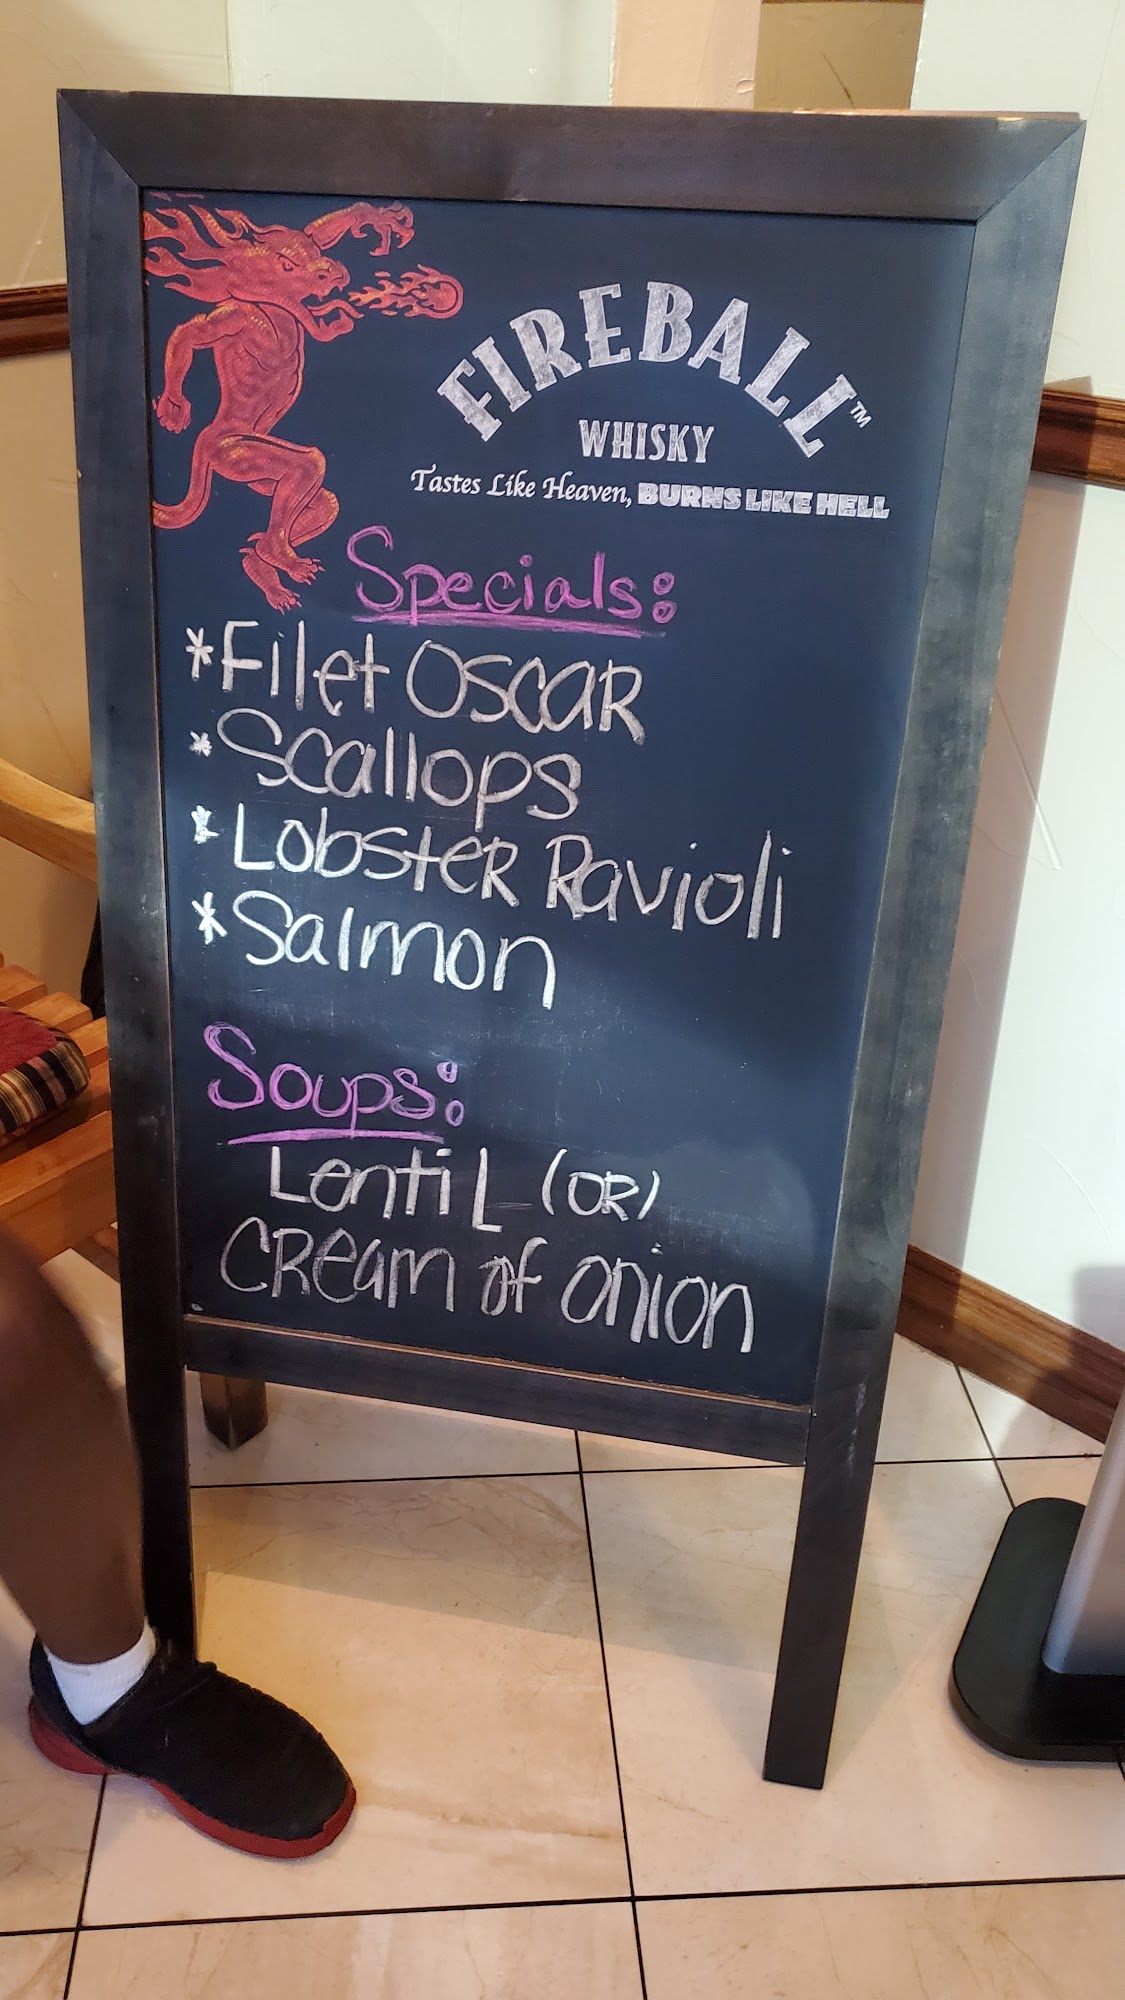 FIREBALL™
WHISKY
Tastes Like Heaven, BURNS LIKE HELL
Specials:
*Filet OSCAR
*Scallops
*LobsteR Ravioli
*Salmon
Soups:
LentiL (OR)
CREam of onion